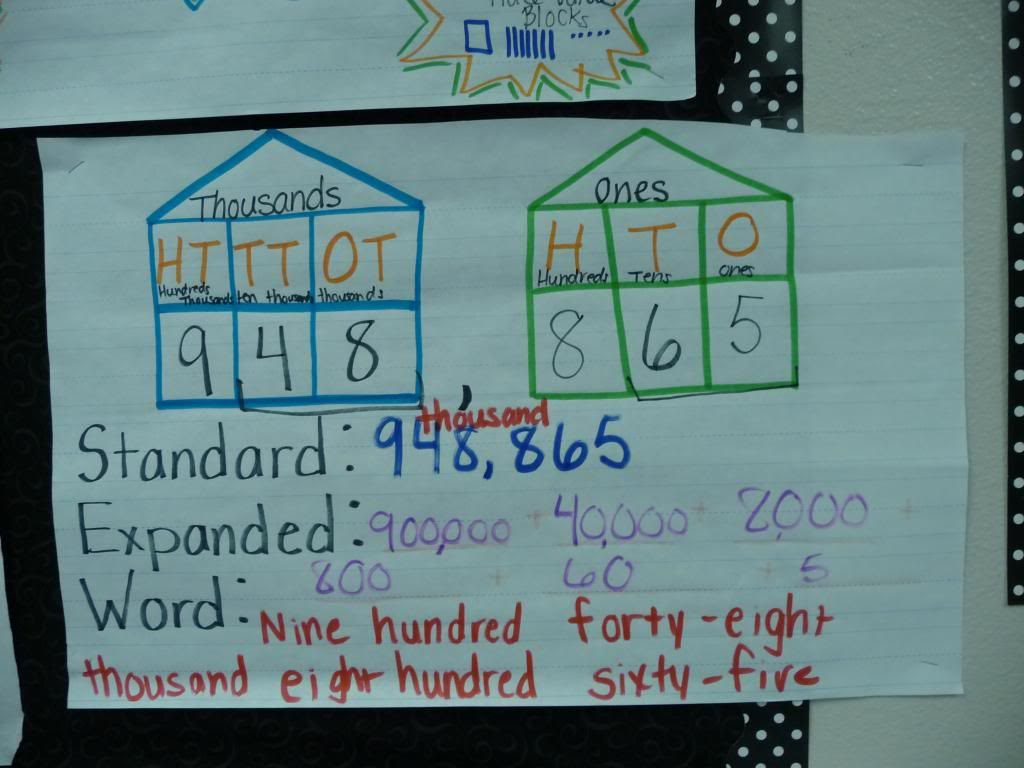 Blocks
Thousands
HT TT OT
Hundreds Thousands ten thousands thousands
9 4 8
,
Ones
H T O
Hundreds Tens ones
8 6 5
thousand
Standard: 948,865
Expanded: 900,000 + 40,000 + 8,000 +
800 + 60 + 5
Word: Nine hundred forty-eight
thousand eight hundred sixty-five